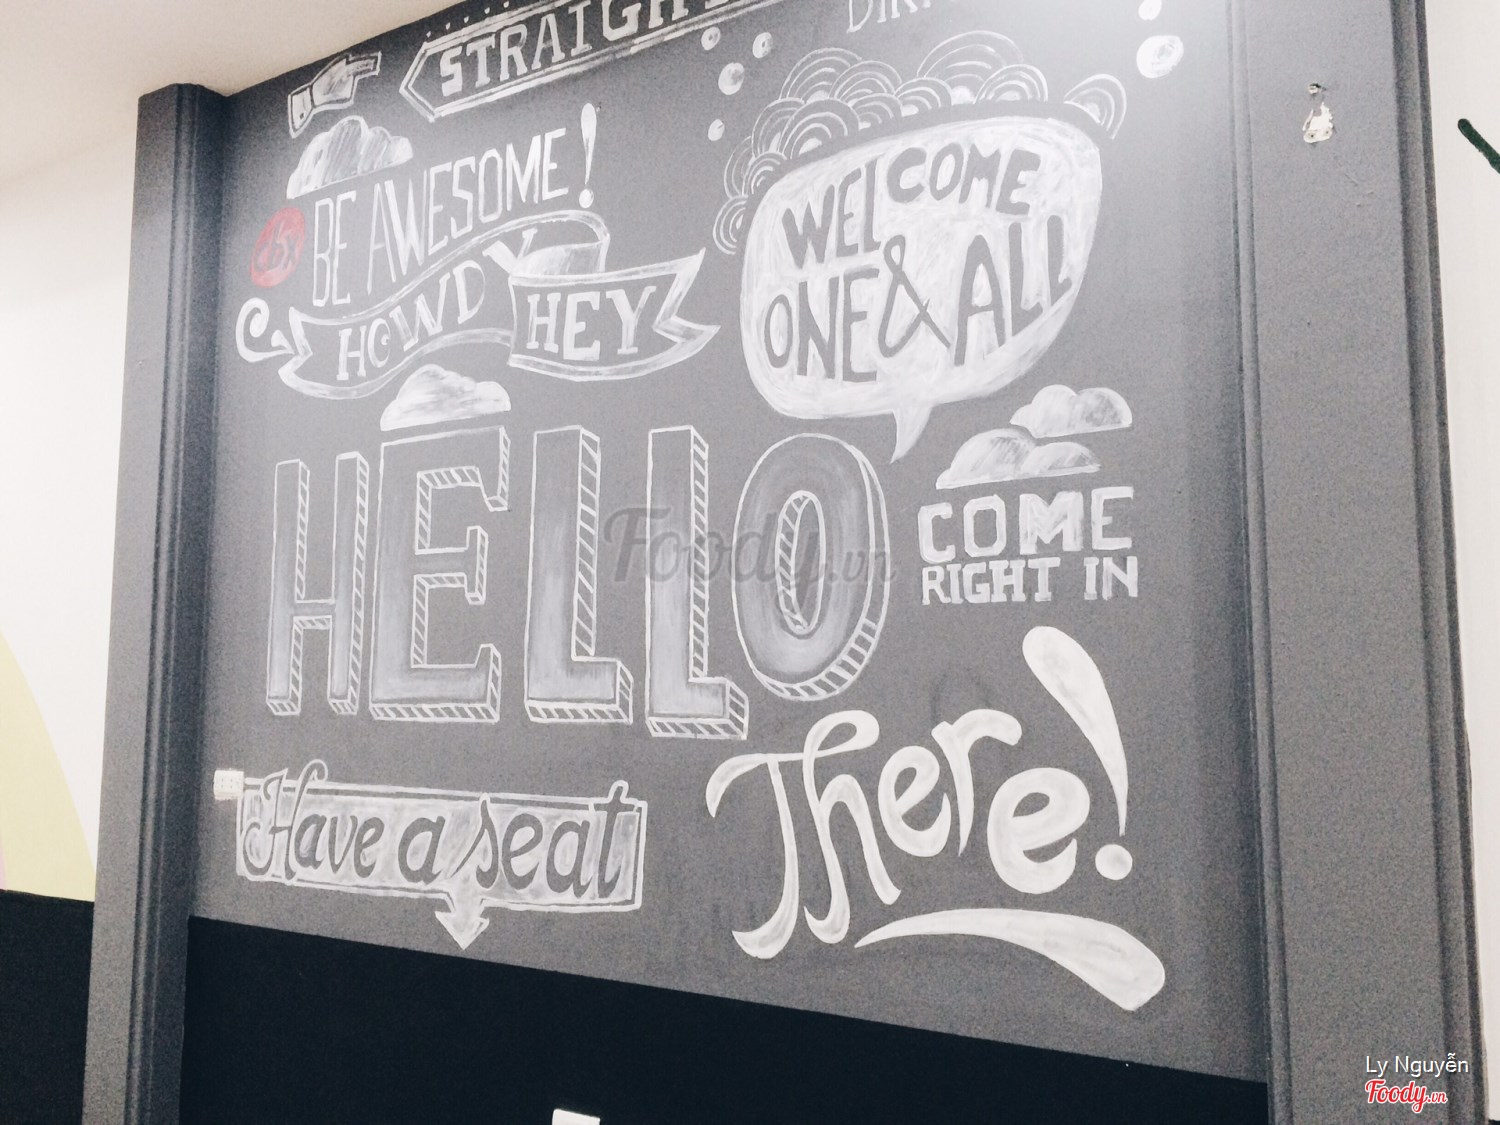 BE AWESOME!
cbx
HOWDY
HEY
WELCOME
ONE & ALL
HELLO
COME
RIGHT IN
There!
Have a seat
Foody.vn
Ly Nguyễn
Foody.vn